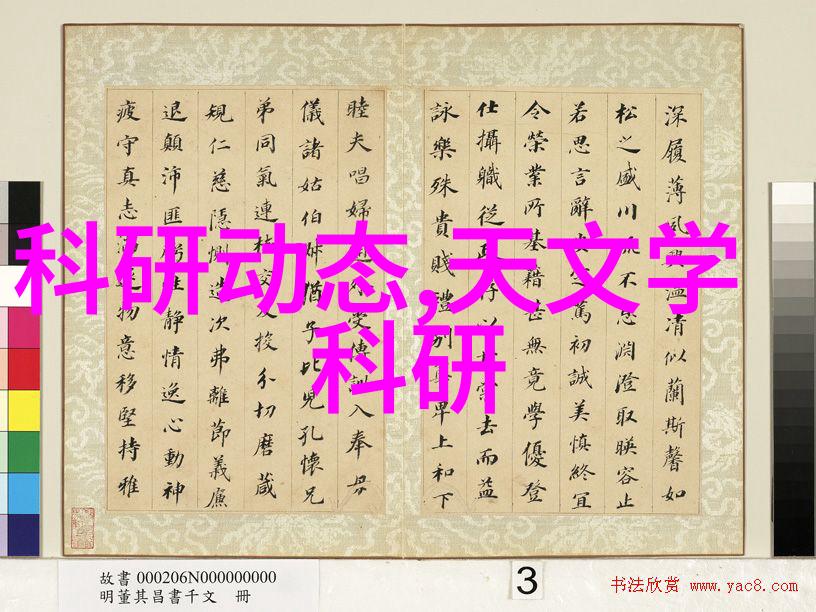 科研动态,天文学
科研
深履薄夙興溫清似蘭斯馨如
松之盛川流不息淵澄取暎容止
若思言辭安定篤初誠美慎終宜
令榮業所基藉甚無竟學優登
仕攝職從政存以甘棠去而益
詠樂殊貴賤禮別尊卑上和下
睦夫唱婦隨外受傅訓入奉母
儀諸姑伯叔猶子比兒孔懷兄
弟同氣連枝交友投分切磨箴
規仁慈隱惻造次弗離節義廉
退顛沛匪虧性靜情逸心動神
疲守真志滿逐物意移堅持雅
故書 000206N000000000
明董其昌書千文 冊
3
书法欣赏 www.yac8.com